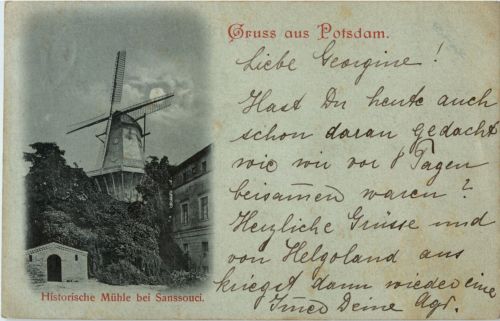 Gruss aus Potsdam.
Liebe Georgine!
Hast Du heute auch
schon daran gedacht
wie wir vor 8 Tagen
beisamen waren?
Herzliche Grüsse und
von Helgoland aus
kriegst dann wieder eine
Deine
Historische Mühle bei Sanssouci.